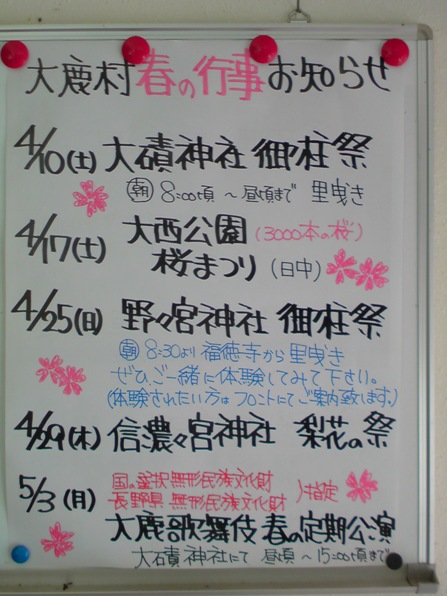 大鹿村春の行事お知らせ
4/10(土) 大磧神社 御柱祭
朝 8:00頃 ～昼頃まで 里曳き
4/17(土) 大西公園 (3000本の桜)
桜まつり (日中)
4/25(日) 野々宮神社 御柱祭
朝 8:30より 福徳寺から里曳き
ぜひご一緒に体験してみて下さい。
(体験されたい方は フロントにてご案内致します。)
4/29(木) 信濃々宮神社 梨花の祭
5/3(月) 国の選択無形民族文化財
長野県 無形民族文化財 )指定
大鹿歌舞伎 春の定期公演
大磧神社にて 昼頃～15:00頃まで